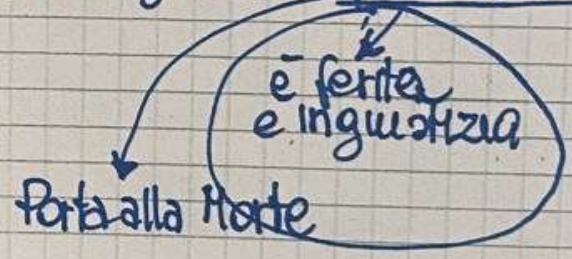 è ferita
e ingiustizia
Porta alla Morte